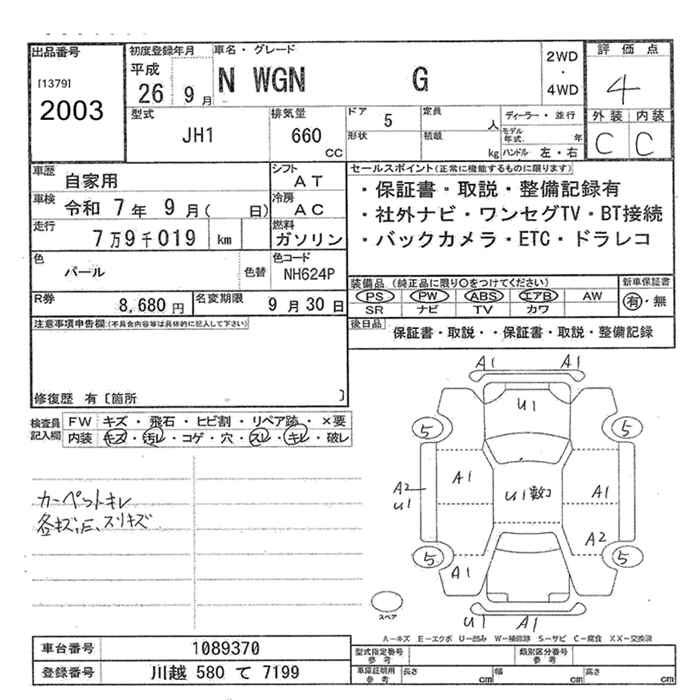 出品番号
[1379]
2003
初度登録年月
平成
26 9月
車名・グレード
N WGN G
2WD
・
4WD
評価点
4
外装 内装
C C
型式
JH1
排気量
660
CC
ドア 5
定員
人
形状
積載
kg
ディーラー・並行
モデル
年式. 年
ハンドル 左・右
車歴
自家用
シフト
AT
車検
令和 7年 9月( 日)
冷房
AC
走行
7万9千019 km
燃料
ガソリン
色
パール
色替
色コード
NH624P
R券
8,680円
名変期限
9月30日
セールスポイント(正常に機能するものに限ります)
・保証書・取説・整備記録有
・社外ナビ・ワンセグTV・BT接続
・バックカメラ・ETC・ドラレコ
装備品(純正品に限り〇をつけてください)
PS PW ABS エアB AW
SR ナビ TV カワ
新車保証書
有・無
後日品
保証書・取説・・保証書・取説・整備記録
注意事項申告欄:(不具合内容等は具体的に記入して下さい)
修復歴 有[箇所 ]
検査員
記入欄
FW キズ・飛石・ヒビ割・リペア跡・×要
内装 キズ・汚レ・コゲ・穴・スレ・キレ・破レ
カーペットキレ
各キズ、圧、スリキズ
A1 A1
U1
5 5
A1 U1数コ A1
A2
U1
A2
5 5
A1
U1 A1
スペア
A-キズ E-エクボ U-凹み W-補修跡 S-サビ C-腐食 XX-交換済
車台番号
1089370
登録番号
川越 580 て 7199
型式指定番号
参考
類別区分番号
参考
車庫証明用
参考
長さ cm
幅 cm
高さ cm